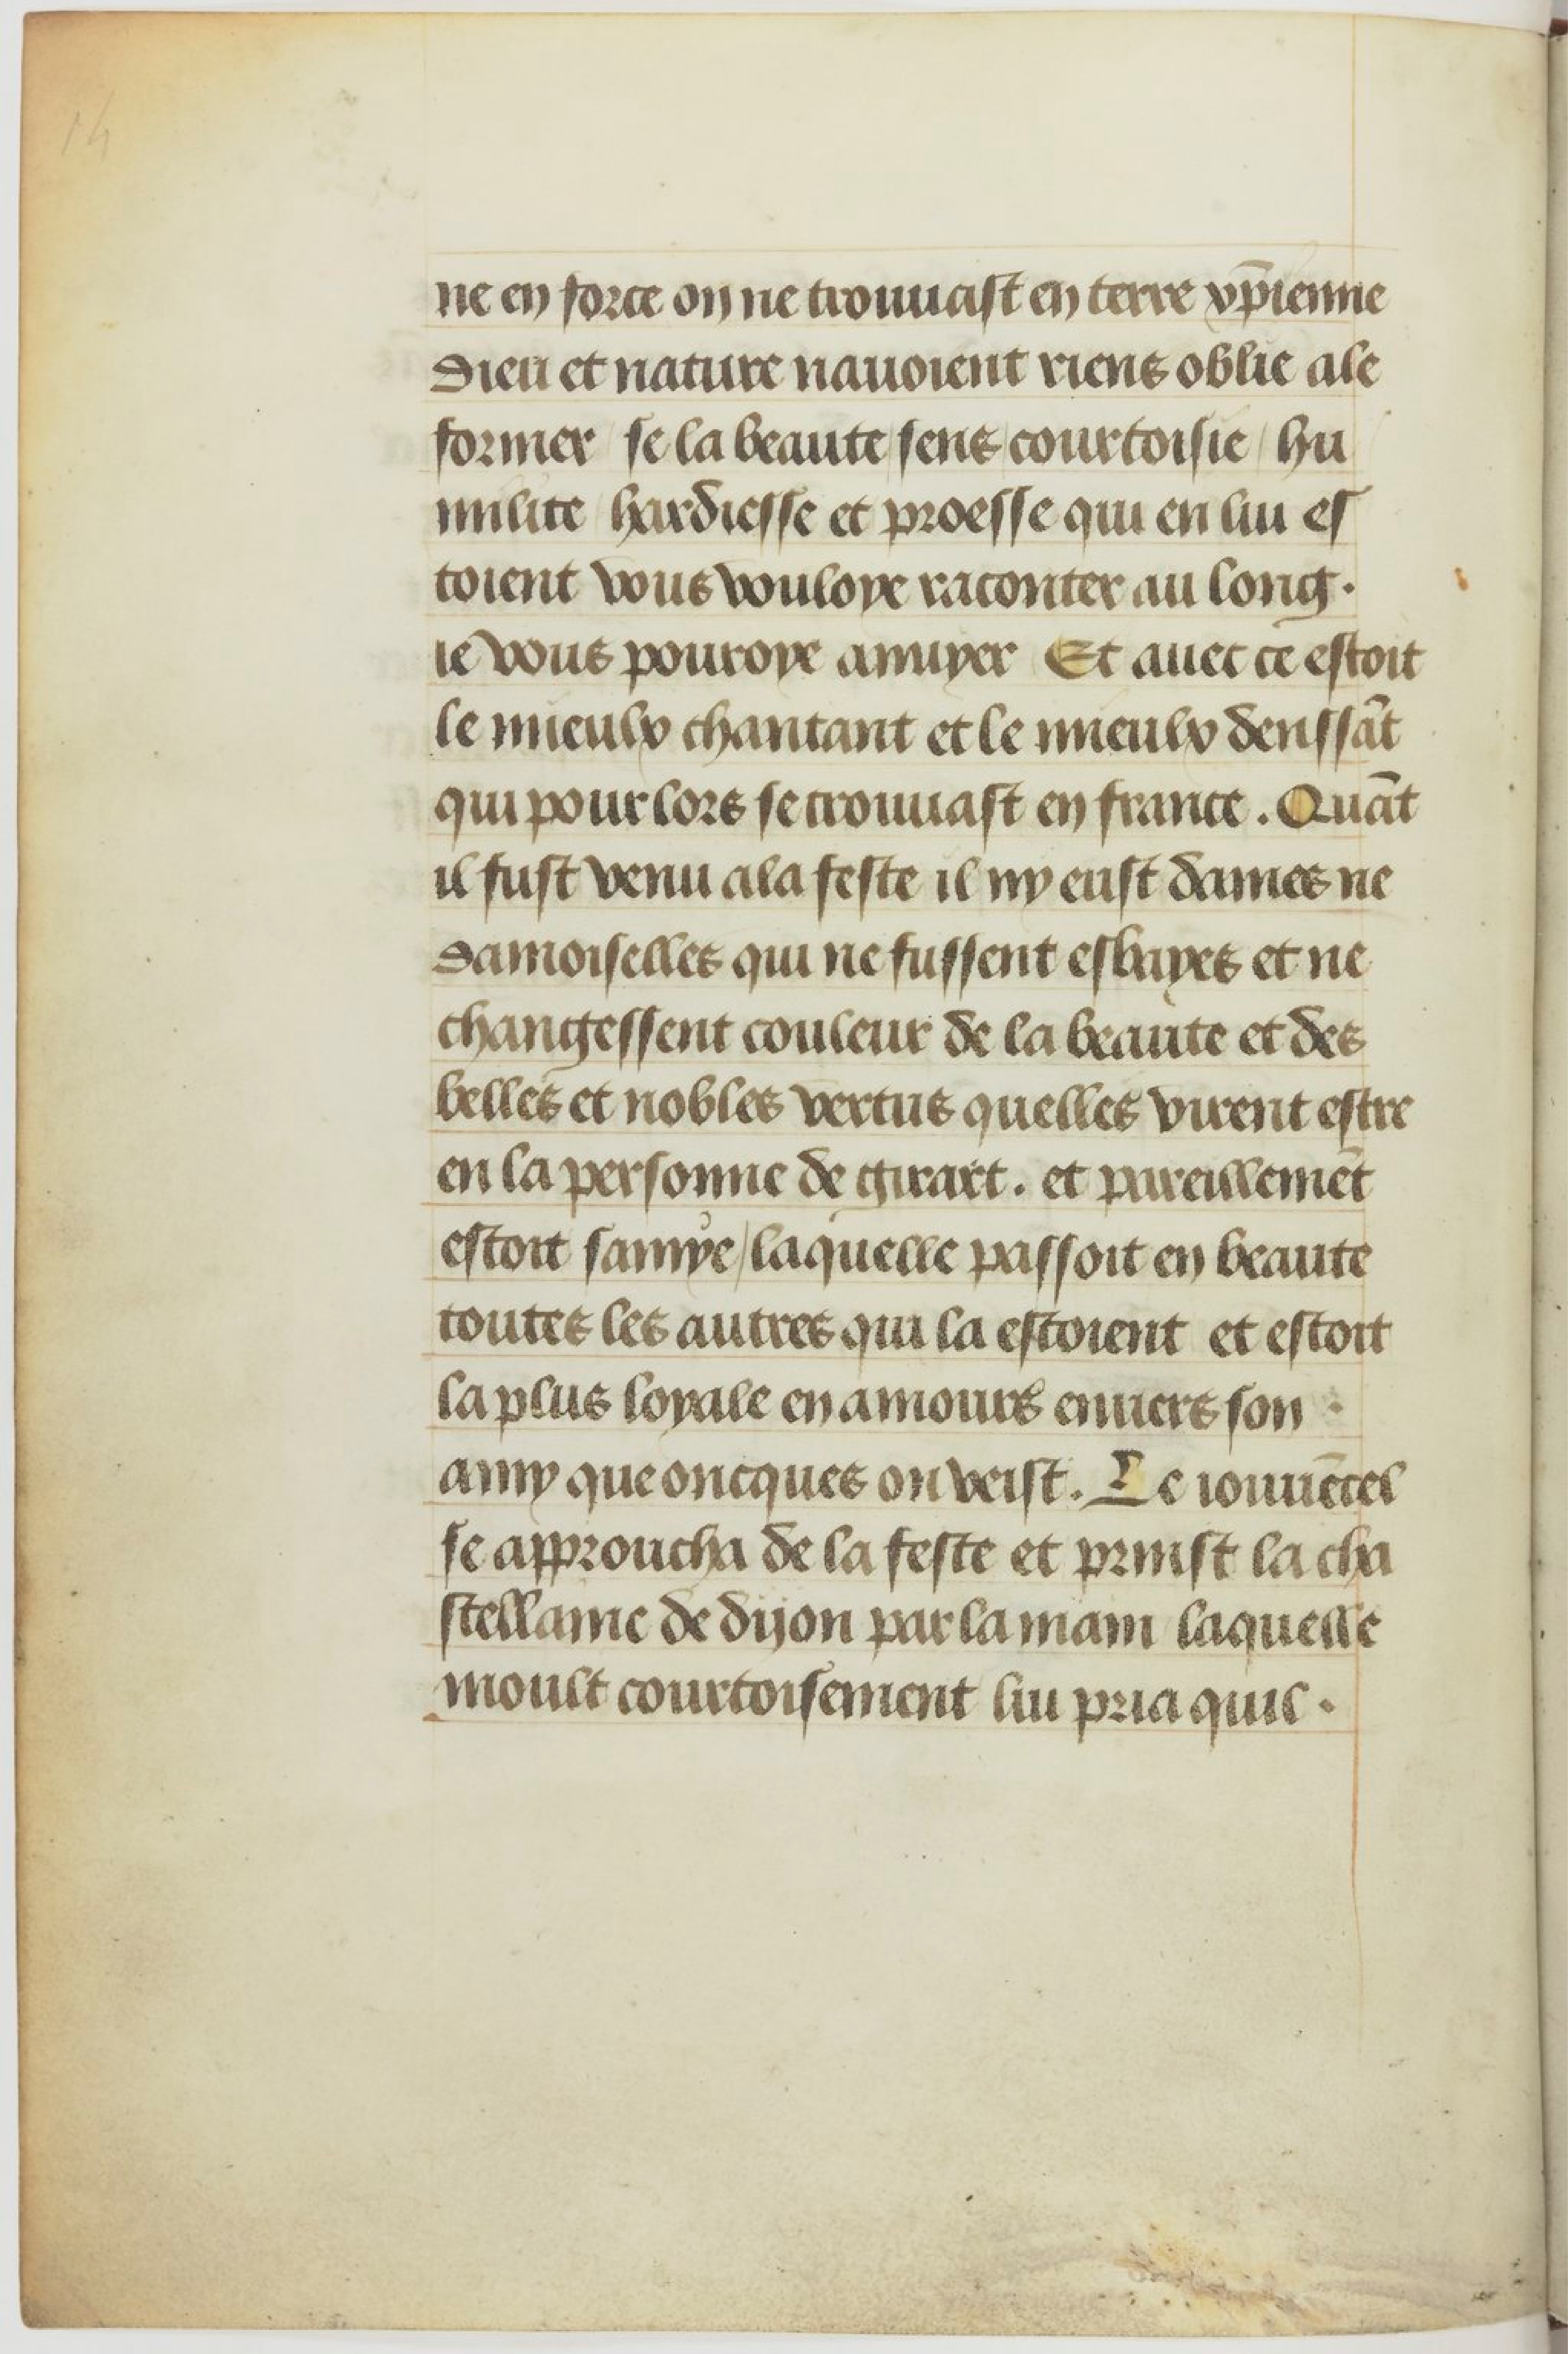 14
ne en force on ne trouuast en terre xp̄ienne
Dieu et nature nauoient riens oblie a le
former / se la beaute / sens / courtoisie / hu
milite / hardiesse et proesse qui en luy es
toient vous vouloye raconter au long .
ie vous pouroye anuyer Et auec ce estoit
le mieulx chantant et le mieulx denssāt
qui pour lors se trouuast en france . Quāt
il fust venu a la feste il ny eust dames ne
Damoiselles qui ne fussent esbayes et ne
changessent couleur de la beaute et des
belles et nobles vertus quelles virent estre
en la personne de girart . et pareillemēt
estoit samye / laquelle passoit en beaute
toutes les autres qui la estoient et estoit
la plus loyale en amours enuers son
amy que oncques on veist . Le iouuēcel
se approucha de la feste et prinst la cha
stellaine de dijon par la main laquelle
moult courtoisement luy pria quil .